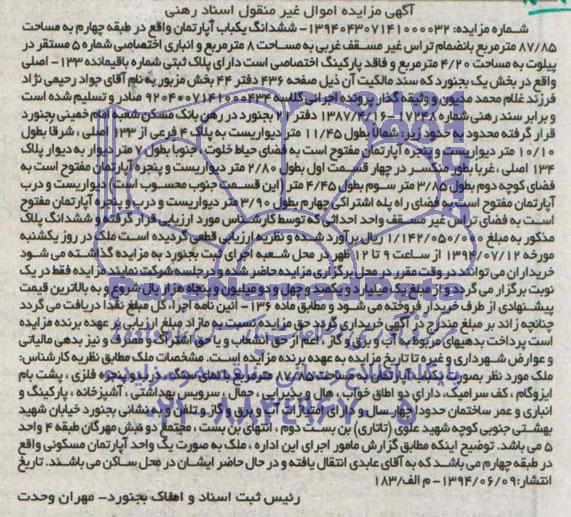 آگهی مزایده اموال غیر منقول اسناد رهنی
شـماره مزایده: ۱۳۹۴۰۴۳۰۷۱۴۱۰۰۰۰۳۲- ششدانگ یکباب آپارتمان واقع در طبقه چهارم به مساحت
۸۷/۸۵ مترمربع بانضمام تراس غیر مسـقف غربی به مساحت ۸ مترمربع و انباری اختصاصی شماره ۵ مستقر در
پیلوت به مساحت ۴/۲۰ مترمربع و فاقد پارکینگ اختصاصی است دارای پلاک ثبتی شماره باقیمانده ۱۳۳- اصلی
واقع در بخش یک بجنورد که سند مالکیت آن ذیل صفحه ۴۳۶ دفتر ۴۴ بخش مزبور به نام آقای جواد رحیمی نژاد
فرزند غلام محمد مدیون و وثیقه گذار پرونده اجرائی کلاسه ۹۲۰۴۰۰۷۱۴۱۰۰۰۴۳۴ صادر و تسلیم شده است
و برابر سند رهنی شماره ۱۷۲۴۸-۱۳۸۷/۴/۱۶ دفتر ۲۰ بجنورد در رهن بانک مسکن شعبه امام خمینی بجنورد
قرار گرفته محدود به حدود زیر: شمالاً بطول ۱۱/۴۵ متر دیواریست به پلاک ۴ فرعی از ۱۳۳ اصلی ، شرقا بطول
۱۰/۱۰ متر دیواریست و پنجره آپارتمان مفتوح است به فضای حیاط خلوت ، جنوباً بطول ۷ متر دیوار به دیوار پلاک
۱۳۴ اصلی ، غربا بطور منکسر در چهار قسمت اول بطول ۲/۸۰ متر دیواریست و پنجره آپارتمان مفتوح است به
فضای کوچه دوم بطول ۳/۸۵ متر سوم بطول ۴/۴۵ متر (این قسمت جنوب محسوب است) دیواریست و درب
آپارتمان مفتوح است به فضای راه پله اشتراکی چهارم بطول ۳/۹۰ متر دیواریست و درب و پنجره آپارتمان مفتوح
است به فضای تراس غیر مسقف واحد احداثی که توسط کارشناس مورد ارزیابی قرار گرفته و ششدانگ پلاک
مذکور به مبلغ ۱/۱۴۲/۰۵۰/۰۰۰ ریال برآورد شده و نظریه ارزیابی قطعی گردیده است ملک در روز یکشنبه
مورخه ۱۳۹۴/۰۷/۱۲ از ساعت ۹ تا ۱۲ ظهر در محل شعبه اجرای ثبت بجنورد به مزایده گذاشته می شود
خریداران می توانند در وقت مقرر در محل برگزاری مزایده حاضر شده و در جلسه شرکت نمایند مزایده فقط در یک
نوبت برگزار می گردد و از مبلغ یک میلیارد و یکصد و چهل و دو میلیون و پنجاه هزار ریال شروع و به بالاترین قیمت
پیشنهادی از طرف خریدار فروخته می شود و مطابق ماده ۱۳۶- آئین نامه اجراء، کل مبلغ نقدا دریافت می گردد
چنانچه زائد بر مبلغ مندرج در آگهی خریداری گردد حق مزایده نسبت به مازاد مبلغ ارزیابی بر عهده برنده مزایده
است پرداخت بدهیهای مربوط به آب و برق و گاز ، اعم از حق انشعاب و یا حق اشتراک و مصرف و نیز بدهی مالیاتی
و عوارض شهرداری و غیره تا تاریخ مزایده به عهده برنده مزایده است. مشخصات ملک مطابق نظریه کارشناس:
ملک مورد نظر بصورت یکباب آپارتمان به مساحت ۸۷/۸۵ مترمربع با نمای سنگ، درب و پنجره فلزی ، پشت بام
ایزوگام ، کف سرامیک، دارای دو اطاق خواب ، هال و پذیرایی ، هال ، سرویس بهداشتی ، آشپزخانه ، پارکینگ و
انباری و عمر ساختمان حدوداً چهار سال و دارای امتیازات آب و برق و گاز و تلفن و به نشانی بجنورد خیابان شهید
بهشتی جنوبی کوچه شهید علوی (تاتاری) بن بست دوم ، انتهای بن بست ، مجتمع دو نبش مهرگان طبقه ۴ واحد
۵ می باشد. توضیح اینکه مطابق گزارش مامور اجرای این اداره ، ملک به صورت یک واحد آپارتمان مسکونی واقع
در طبقه چهارم می باشد که به آقای عابدی انتقال یافته و در حال حاضر ایشان در محل ساکن می باشند. تاریخ
انتشار: ۱۳۹۴/۰۶/۰۹- م الف/۱۸۳
رئیس ثبت اسناد و املاک بجنورد- مهران وحدت